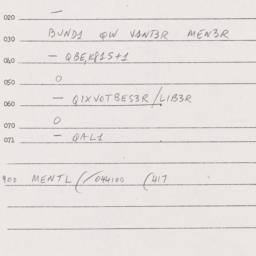 020 —
030 BUND1 QW VANT3R MEN3R
040 — QBE,K815+1
050 O
060 — QIXVOTBES3R/LIB3R
070 O
071 — QAL1
900 MENTL (/044100 (417